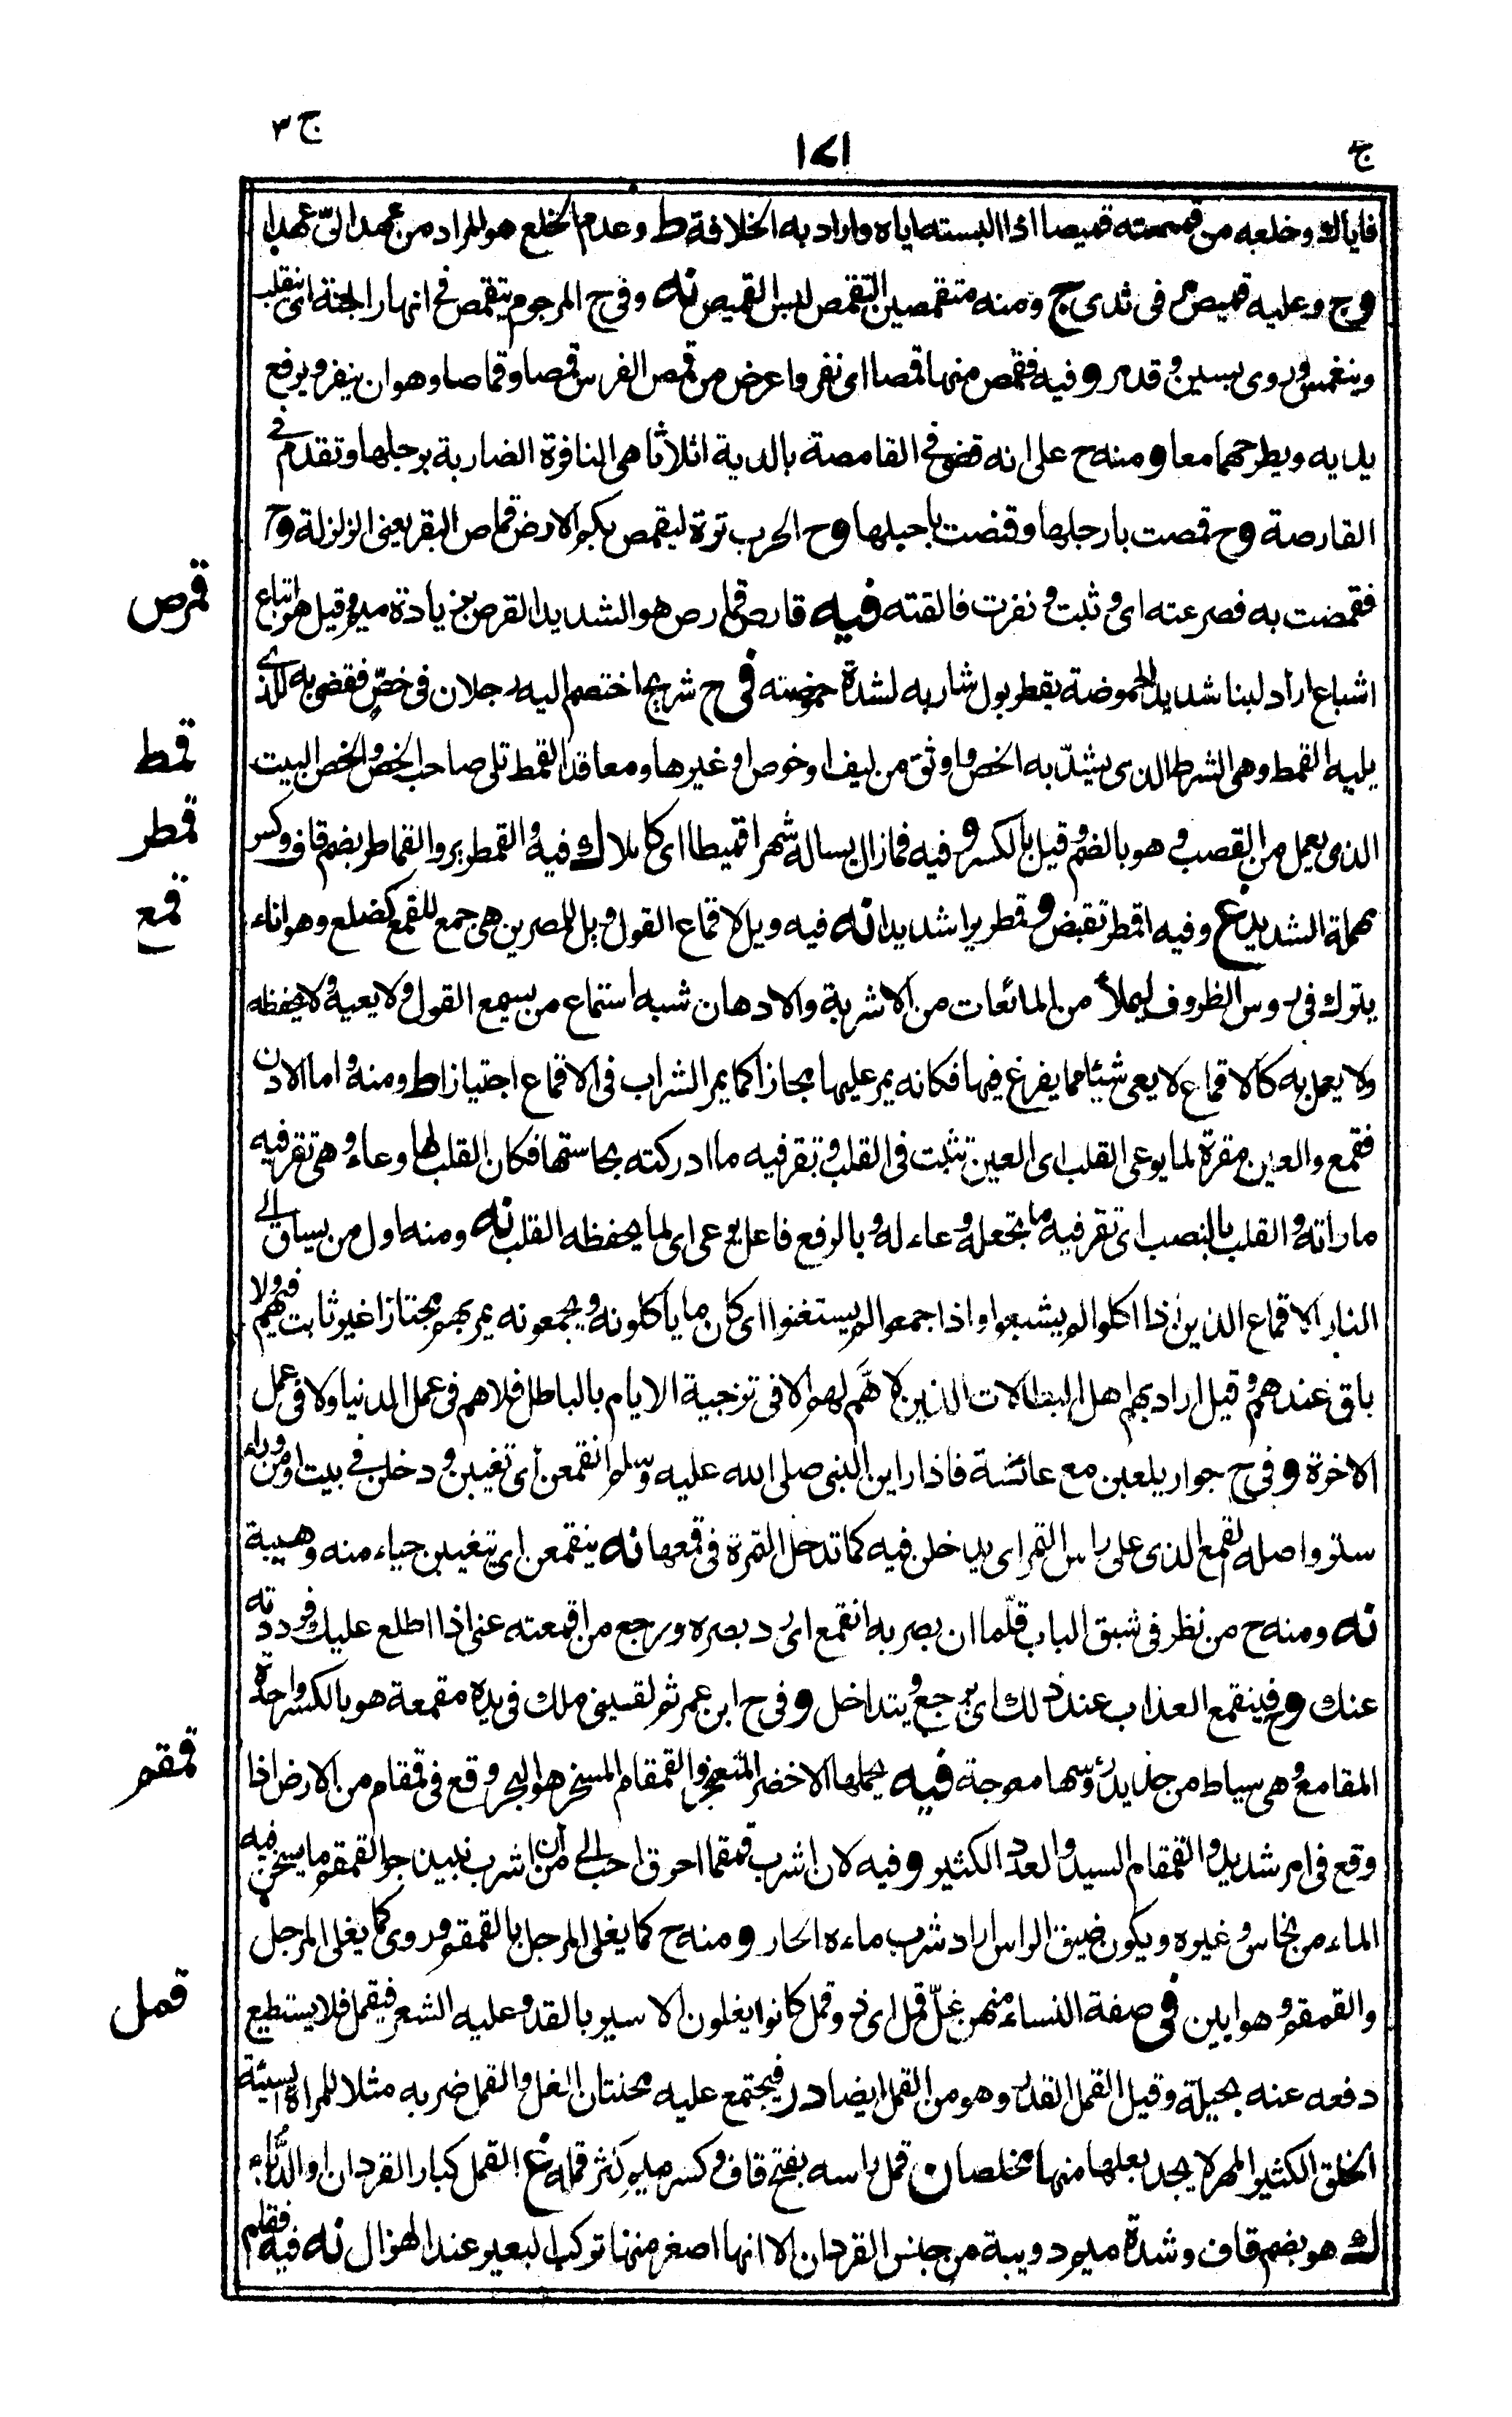 ج ١٧١ ج ٣
فاياك وخلعه من قمصته قميصا اذا البسته اياه واراد به الخلافة ط وعدم الخلع هو المراد من عهد الىّ عهدا
وج وعليه قميص مر فى ثدى ج ومنه متقمصين التقمص لبس القميص نه وفى ح المرجوم يتقمص فى انهار الجنة اى ينقلب
وينغمس وروى بسين وقدمر وفيه فقمص منها قمصا اى نفر واعرض من قمص الفرس قمصا وقماصا وهو ان ينفر ويرفع
يديه ويطرحهما معا ومنه ح على انه قضى فى القامصة بالدية اثلاثا هى النافرة الضاربة برجلها وتقدم فى
القارصة وح قمصت بارجلها وقنصت باحبلها وح الحرب ترة ليقمص بكم الارض قماص البقر يعنى الزلزلة وح
قمرص
فقمصت به فصرعته اى وثبت ونفرت فالقته فيه قارص قمارص هو الشديد القرص بزيادة ميم وقيل هو اتباع
اشباع اراد لبنا شديد الحموضة يقطر بول شاربه لشدة حموضته فى ح شريح اختصم اليه رجلان فى خصّ فقضى به للذى
قمط
يليه القمط وهى الشرط الذى يشدّ به الخص واوثق من ليف او خوص او غيرها ومعاقد القمط تلى صاحب الخص والخص البيت
قمطر
الذى يعمل من القصب و هو بالضم وقيل بالكسر و فيه فمازال يساله شهرا قميطا اى كاملا ك فيه والقمطرير والقماطر بضم قاف وكسر
قمع
مهملة الشديد غ وفيه اقمطر تقبض و قمطريرا شديدا نه فيه ويل لاقماع القول ويل للمصرين هى جمع للقمع كضلع وهو اناء
يترك فى رءوس الظروف ليملأ من المائعات من الاشربة والادهان شبه استماع من يسمع القول ولا يعيه ولا يحفظه
ولا يعمل به كالاقماع لا يعى شيئا مما يفرغ فيها فكانه يمر عليها مجازا كما يمر الشراب فى الاقماع اجتيازا ط ومنه واما الاذن
فقمع والعين مقرة لما يوعى القلب اى العين تثبت فى القلب وتقر فيه ما ادركته بحاستها فكان القلب لها وعاء وهى تقر فيه
ما راته والقلب بالنصب اى تقر فيه ما يجعله وعاء له وبالرفع فاعل يوعى اى لما يحفظه القلب نه ومنه اول من يساق الى
النار الاقماع الذين اذا اكلوا لم يشبعوا واذا جمعوا لم يستغنوا اى كان ما ياكلونه ويجمعونه يمر بهم مجتازا غير ثابت فيهم ولا
باق عندهم وقيل اراد بهم اهل البطالات الذين لا همّ لهم الا فى تزجية الايام بالباطل فلا هم فى عمل الدنيا ولا فى عمل
الاخرة وفى ح جوار يلعبن مع عائشة فاذا راين النبى صلى الله عليه وسلم انقمعن اى تغيبن ودخلن فى بيت او من وراء
ستر واصله القمع الذى على راس التمر اى يدخلن فيه كما تدخل التمرة فى قمعها نه ينقمعن اى يتغيبن حياء منه وهيبة
نه ومنه ح من نظر فى شق الباب فلما ان بصر به انقمع اى رد بصره ورجع من اقمعته عنى اذا اطلع عليك فرددته
عنك وح فينقمع العذاب عند ذلك اى يرجع ويتداخل وفى ح ابن عمر ثم لقينى ملك فى يده مقمعة هو بالكسر واحدة
قمقم
المقامع وهى سياط من حديد رءوسها معوجة فيه يحملها الاخضر المثعنجر والقمقام المسخر هو البحر وقع فى قمقام من الارض اذا
وقع فى امر شديد والقمقام السيد والعدد الكثير وفيه لان اشرب قمقما احرق احب الى من ان اشرب نبيذ جر القمقم ما يسخن فيه
الماء من نحاس وغيره ويكون ضيق الراس اراد شرب ماءه الحار ومنه ح كما يغلى المرجل بالقمقم وروى كما يغلى المرجل
قمل
والقمقم وهو ابين فى صفة النساء منهن غلّ قمل اى ذو قمل كانوا يغلون الاسير بالقد وعليه الشعر فيقمل فلا يستطيع
دفعه عنه بحيلة وقيل القمل القذر وهو من القمل ايضا در فيجتمع عليه محنتان الغل والقمل ضربه مثلا للمراة السيئة
الخلق الكثير المهر لا يجد بعلها منها مخلصا ن قمل راسه بفتح قاف وكسر ميم كثر قمله غ القمل كبار القردان او الدَّباء
ك هو بضم قاف وشدة ميم دويبة من جنس القردان الا انها اصغر منها تركب البعير عند الهزال نه فيه فقلم